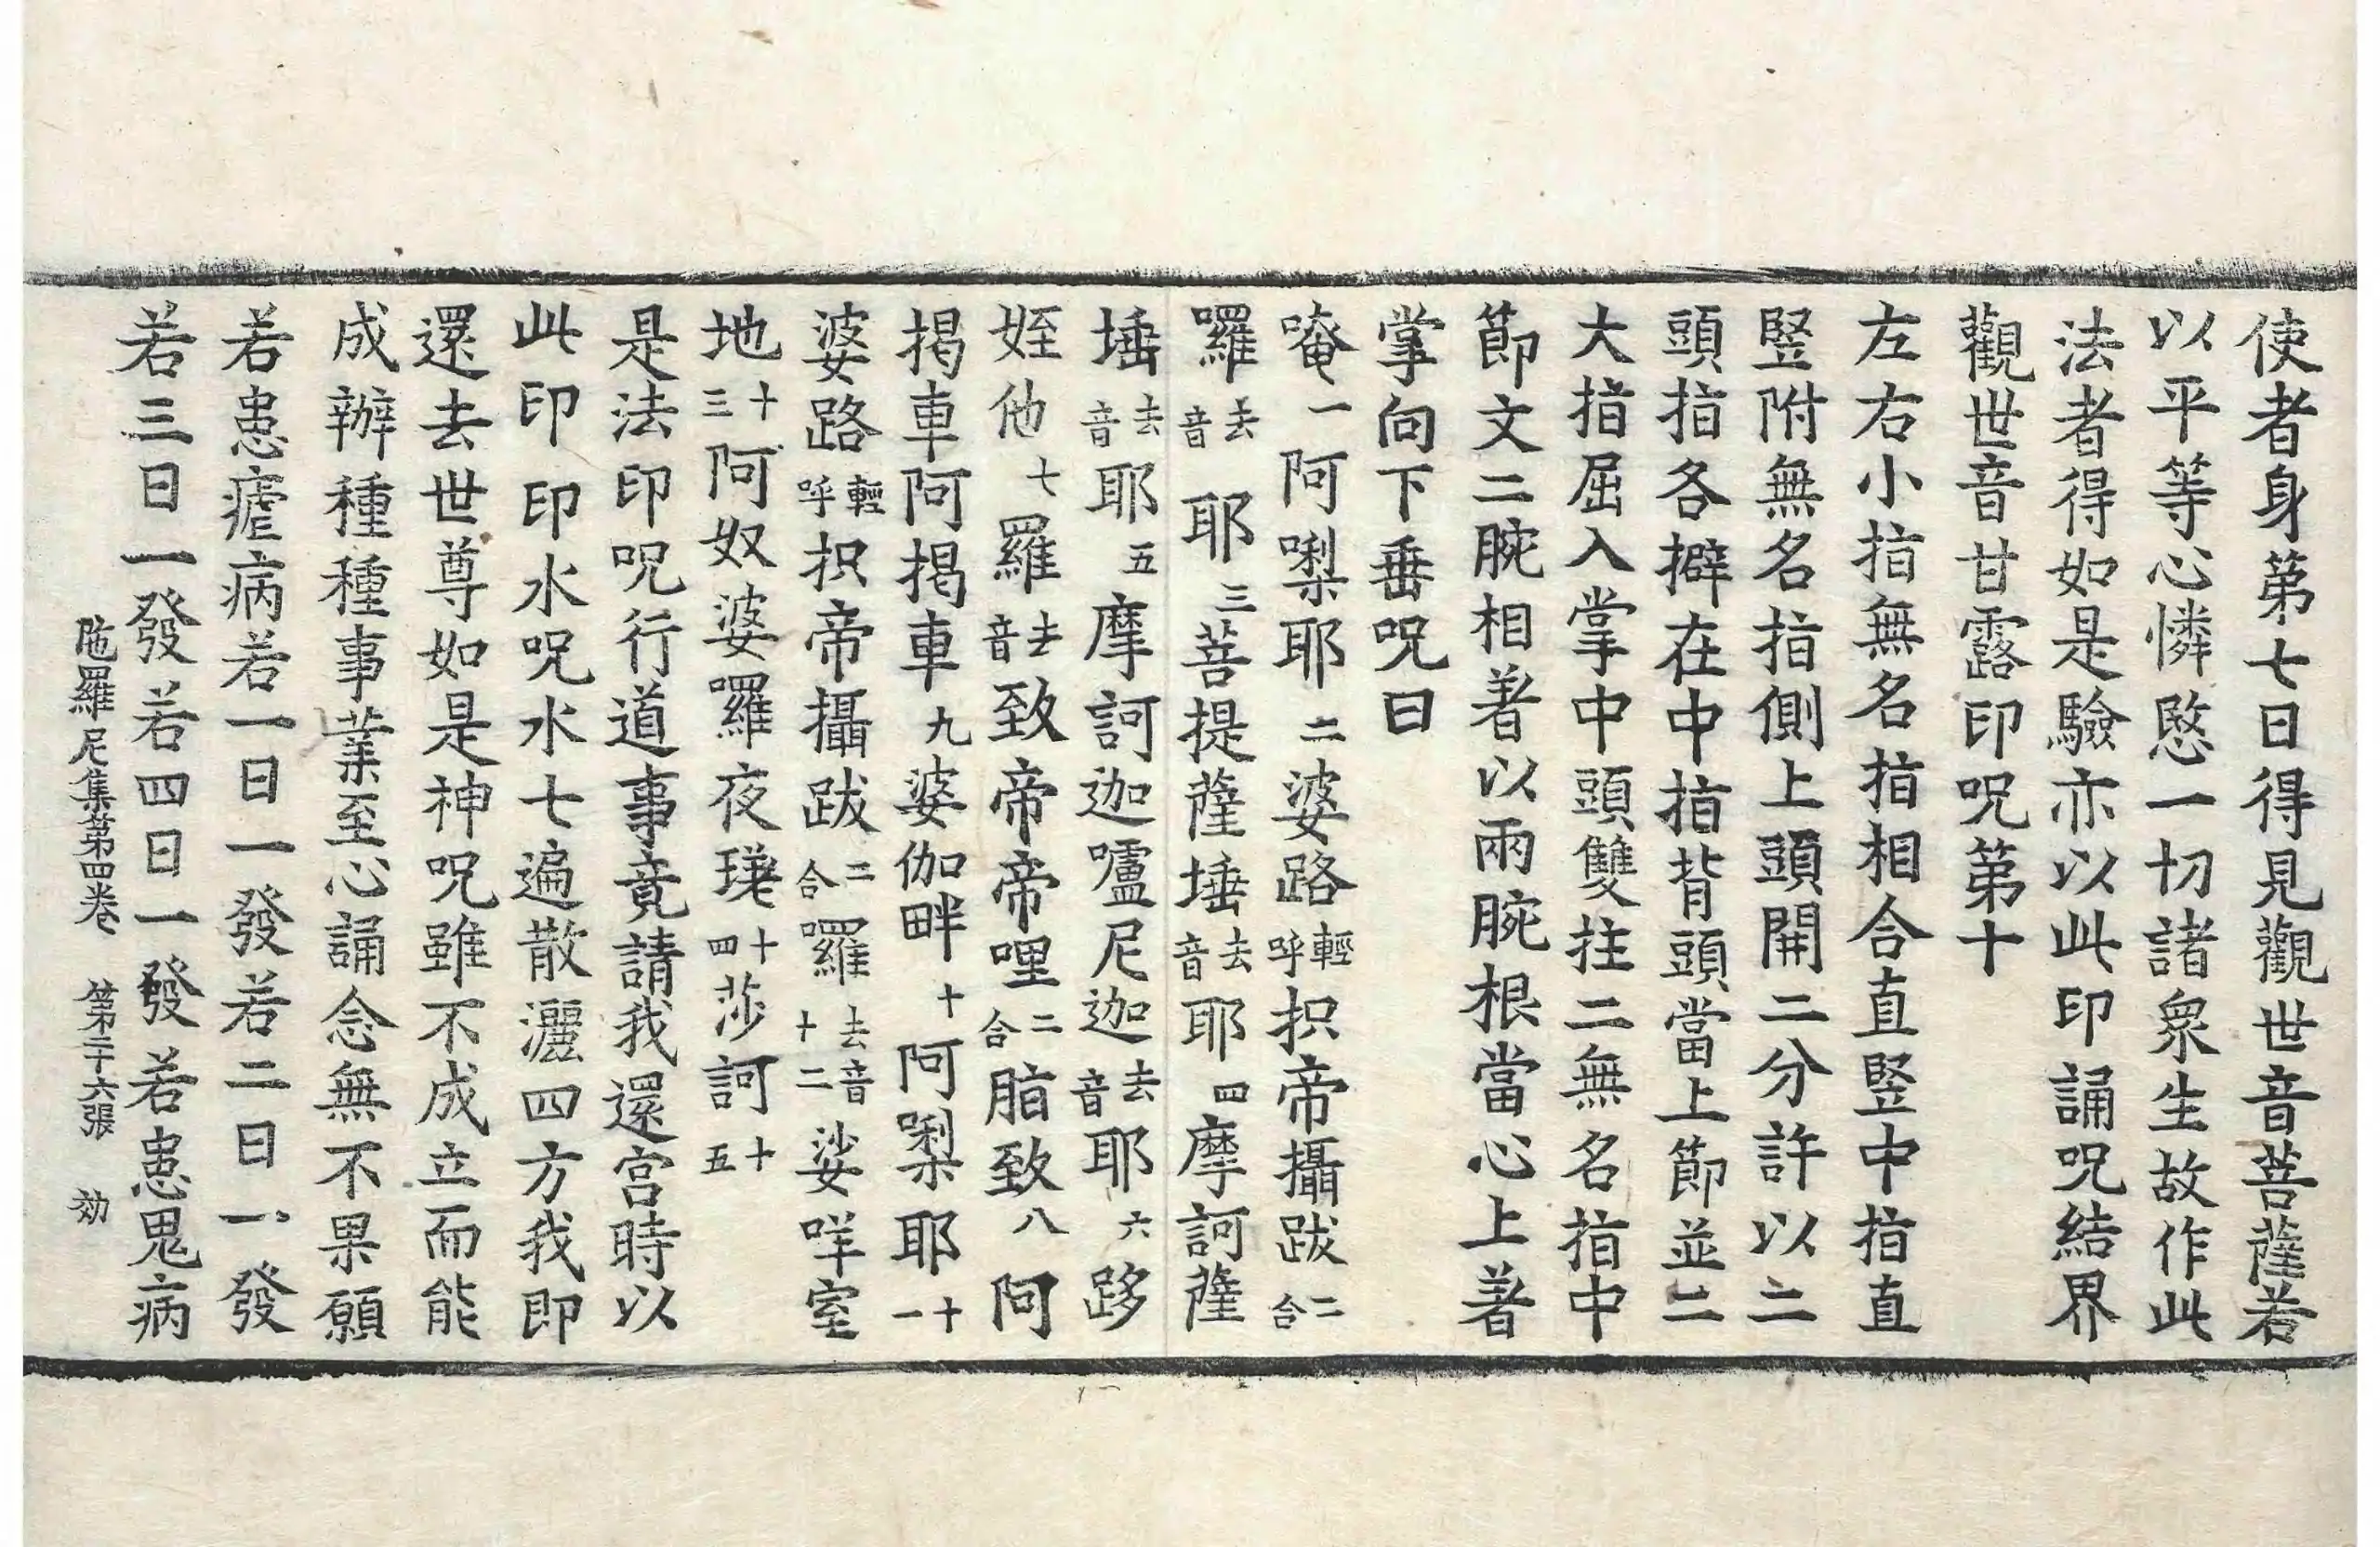 使者身第七日得見觀世音菩薩若
以平等心憐愍一切諸衆生故作此
法者得如是驗亦以此印誦呪結界
觀世音甘露印呪第十
左右小指無名指相合直竪中指直
竪附無名指側上頭開二分許以二
頭指各擗在中指背頭當上節並二
大指屈入掌中頭雙拄二無名指中
節文二腕相著以兩腕根當心上著
掌向下垂呪曰
唵一阿㗚耶二婆路輕呼抧帝攝跋二合
囉去音耶三菩提薩埵去音耶四摩訶薩
埵去音耶五摩訶迦嚧尼迦去音耶六跢
姪他七羅去音致帝帝哩二合脂致八阿
揭車阿揭車九婆伽畔十阿㗚耶十一
婆路輕呼抧帝攝跋二合囉去音十二娑咩室
地十三阿奴婆囉夜十四莎訶十五
是法印呪行道事竟請我還宮時以
此印印水呪水七遍散灑四方我即
還去世尊如是神呪雖不成立而能
成辦種種事業至心誦念無不果願
若患瘧病若一日一發若二日一發
若三日一發若四日一發若患鬼病
陁羅尼集第四卷 第二十六張 効